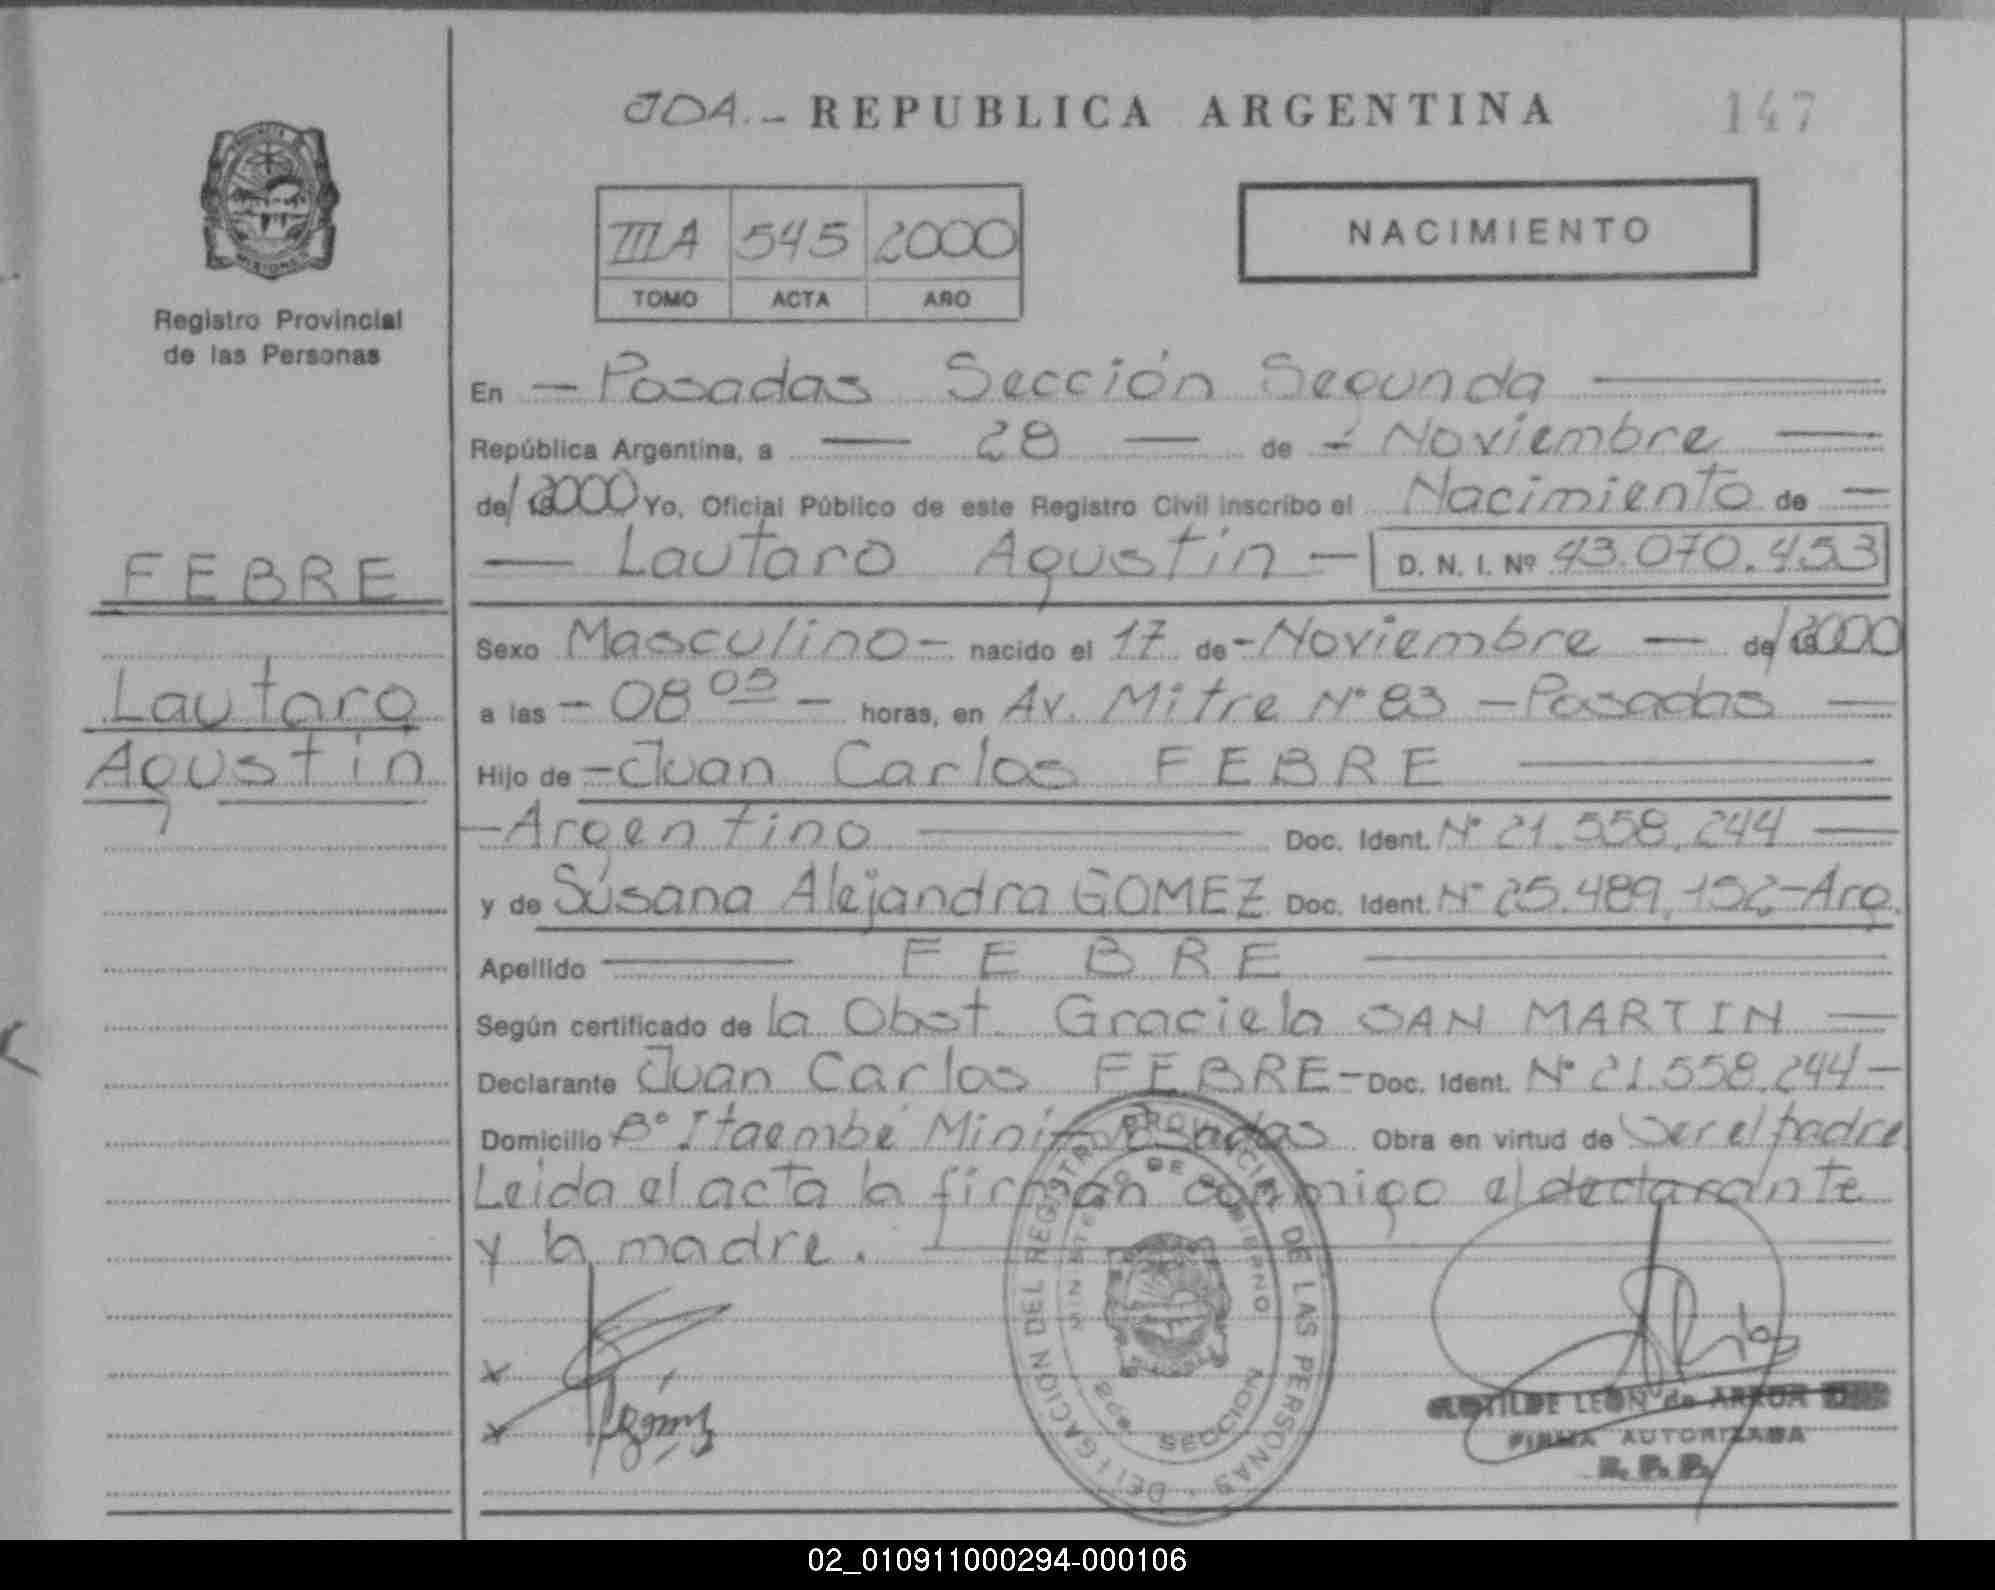 JDA.- REPUBLICA ARGENTINA 147
IIIA 545 2000
TOMO ACTA AÑO
NACIMIENTO
Registro Provincial
de las Personas
FEBRE
Lautaro
Agustin
En — Posadas Sección Segunda —
República Argentina, a — 28 — de - Noviembre —
de/ 2000 Yo, Oficial Público de este Registro Civil inscribo el Nacimiento de —
— Lautaro Agustin — D. N. I. Nº 43.070.453
Sexo Masculino - nacido el 17 de - Noviembre — de/ 2000
a las - 08 05 - horas, en Av. Mitre Nº 83 - Posadas —
Hijo de - Juan Carlos FEBRE —
- Argentino — Doc. Ident. Nº 21.558.244 —
y de Susana Alejandra GOMEZ Doc. Ident. Nº 25.489.152 - Arg.
Apellido — FEBRE —
Según certificado de la Obst. Graciela SAN MARTIN —
Declarante Juan Carlos FEBRE - Doc. Ident. Nº 21.558.244 -
Domicilio Bº Itaembé Miní - Posadas Obra en virtud de Ser el padre
Leida el acta la firman conmigo el declarante
y la madre.
DELEGACION DEL REGISTRO PROVINCIAL DE LAS PERSONAS
MINISTERIO DE GOBIERNO
SECCION
MISIONES
x
x Gómez
CLOTILDE LEON de
FIRMA AUTORIZADA
02_010911000294-000106